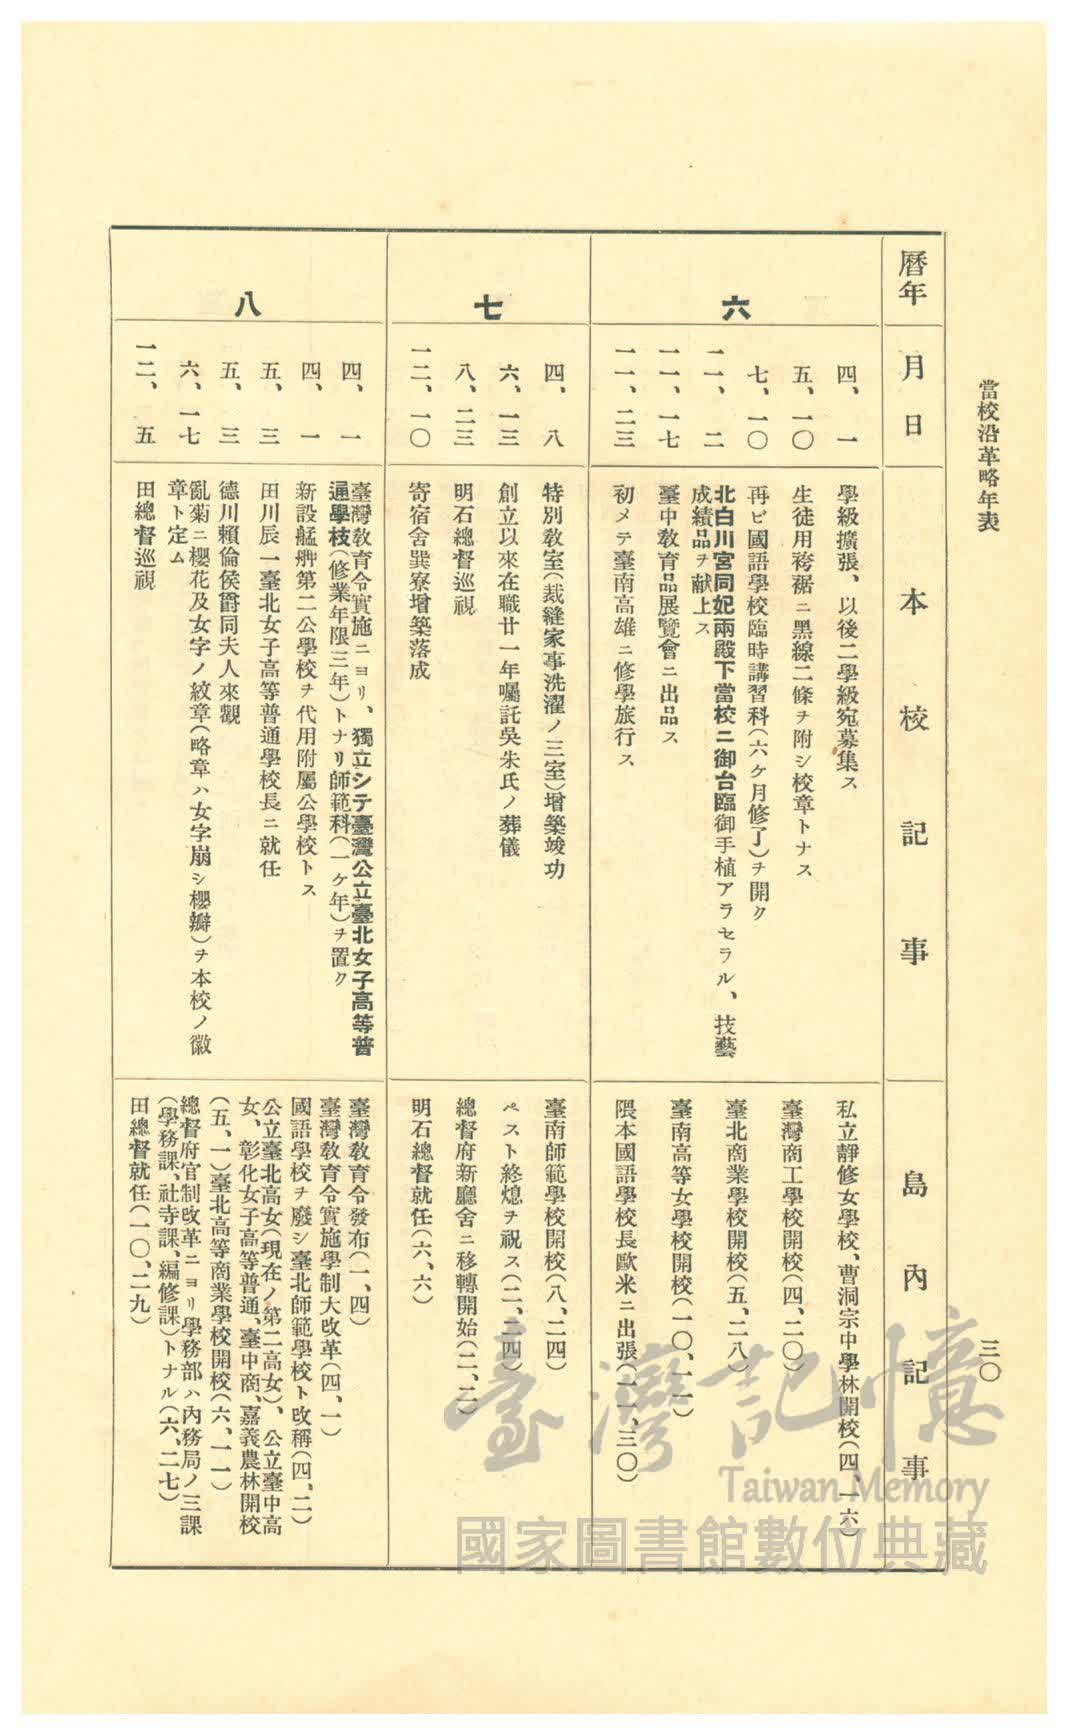 當校沿革略年表
三〇
曆年
月日
本校記事
島內記事
六
四、一
學級擴張、以後二學級宛募集ス
五、一〇
生徒用袴裾ニ黑線二條ヲ附シ校章トナス
七、一〇
再ビ國語學校臨時講習科(六ケ月修了)ヲ開ク
一一、二
北白川宮同妃兩殿下當校ニ御台臨御手植アラセラル、技藝
成績品ヲ献上ス
一一、一七
臺中敎育品展覽會ニ出品ス
一一、二三
初メテ臺南高雄ニ修學旅行ス
私立靜修女學校、曹洞宗中學林開校(四、一六)
臺灣商工學校開校(四、二〇)
臺北商業學校開校(五、二八)
臺南高等女學校開校(一〇、一一)
隈本國語學校長歐米ニ出張(一一、三〇)
七
四、八
特別敎室(裁縫家事洗濯ノ三室)增築竣功
六、一三
創立以來在職廿一年囑託吳朱氏ノ葬儀
八、二三
明石總督巡視
一二、一〇
寄宿舍巽寮增築落成
臺南師範學校開校(八、二四)
ペスト終熄ヲ祝ス(二、二四)
總督府新廳舍ニ移轉開始(二、二)
明石總督就任(六、六)
八
四、一
臺灣敎育令實施ニヨリ、獨立シテ臺灣公立臺北女子高等普
通學校(修業年限三年)トナリ師範科(一ケ年)ヲ置ク
四、一
新設艋舺第二公學校ヲ代用附屬公學校トス
五、三
田川辰一臺北女子高等普通學校長ニ就任
五、三
德川賴倫侯爵同夫人來觀
六、一七
亂菊ニ櫻花及女字ノ紋章(略章ハ女字崩シ櫻瓣)ヲ本校ノ徽
章ト定ム
一二、五
田總督巡視
臺灣敎育令發布(一、四)
臺灣敎育令實施學制大改革(四、一)
國語學校ヲ廢シ臺北師範學校ト改稱(四、二)
公立臺北高女(現在ノ第二高女)、公立臺中高
女、彰化女子高等普通、臺中商、嘉義農林開校
(五、一)臺北高等商業學校開校(六、一一)
總督府官制改革ニヨリ學務部ハ內務局ノ三課
(學務課、社寺課、編修課)トナル(六、二七)
田總督就任(一〇、二九)
臺灣記憶
Taiwan Memory
國家圖書館數位典藏